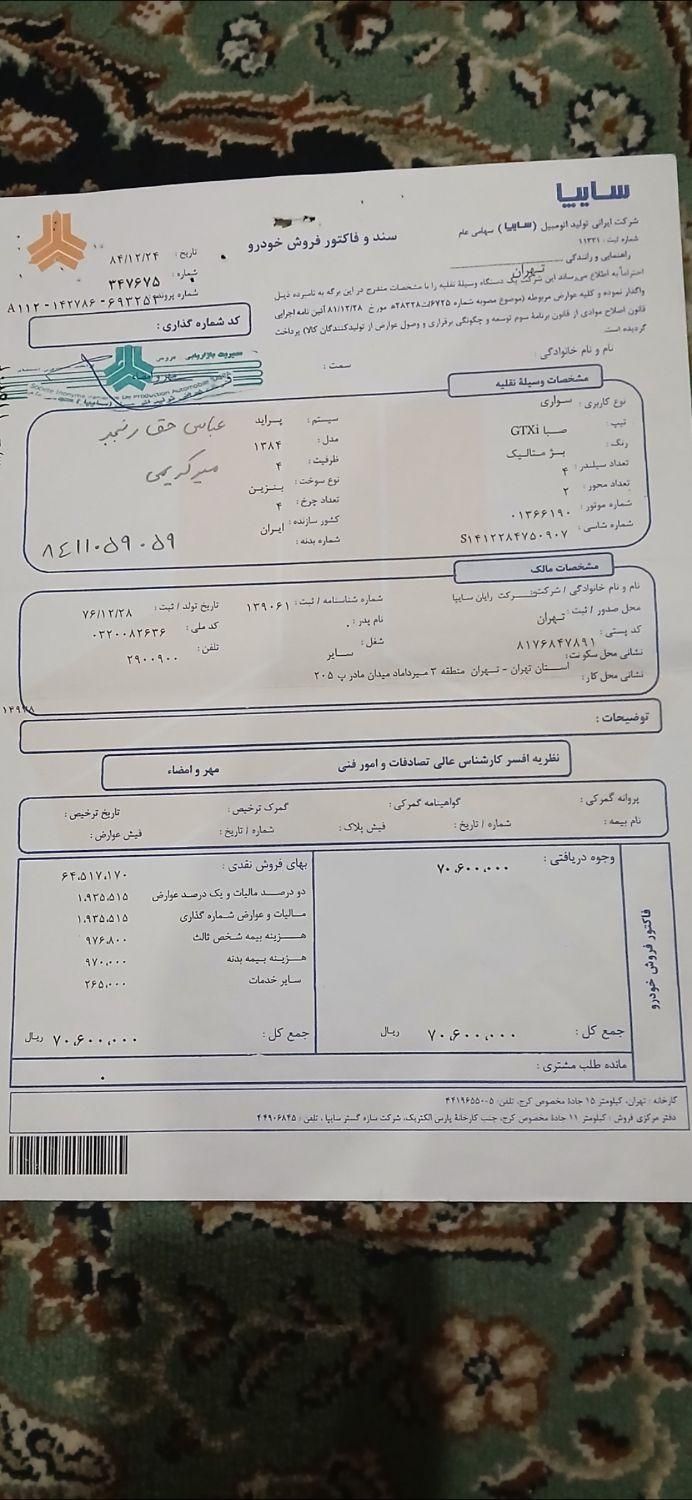 سایپا
شرکت ایرانی تولید اتومبیل (سایپا) سهامی عام
شماره ثبت : ۱۱۳۳۱
سند و فاکتور فروش خودرو
تاریخ : ۸۴/۱۲/۲۴
شماره : ۳۴۷۶۷۵
شماره پرونده : A112 - ۱۴۲۷۸۶ - ۶۹۳۲۵۴
کد شماره گذاری :
راهنمایی و رانندگی تهران
احتراماً به اطلاع می‌رساند این شرکت یک دستگاه وسیلهٔ نقلیه را با مشخصات مندرج در این برگه به نامبرده ذیل
واگذار نموده و کلیه عوارض مربوطه (موضوع مصوبه شماره ۶۷۲۵/ت۲۸۳۲۸ه مورخ ۸۱/۱۲/۲۸ آئین نامه اجرایی
قانون اصلاح موادی از قانون برنامهٔ سوم توسعه و چگونگی برقراری و وصول عوارض از تولیدکنندگان کالا) پرداخت
گردیده است.
نام و نام خانوادگی :
سمت :
مهر و امضاء
مدیریت بازاریابی و فروش
مشخصات وسیلهٔ نقلیه
نوع کاربری : سواری
سیستم : پراید
تیپ : صبا GTXi
مدل : ۱۳۸۴
رنگ : بژ متالیک
ظرفیت : ۴
تعداد سیلندر : ۴
نوع سوخت : بنزین
تعداد محور : ۲
تعداد چرخ : ۴
شماره موتور : ۰۱۳۶۶۱۹۰
کشور سازنده : ایران
شماره شاسی : S۱۴۱۲۲۸۴۷۵۰۹۰۷
شماره بدنه :
عباس حق رنجبر
میرکریمی
۸۴۱۱۰۵۹۰۵۹
مشخصات مالک
نام و نام خانوادگی / شرکت : شرکت رایان سایپا
شماره شناسنامه / ثبت : ۱۳۹۰۶۱
تاریخ تولد / ثبت : ۷۶/۱۲/۲۸
محل صدور / ثبت : تهران
نام پدر : .
کد ملی : ۰۳۲۰۰۸۲۶۳۶
کد پستی : ۸۱۷۶۸۴۷۸۹۱
شغل : سایر
تلفن : ۲۹۰۰۹۰۰
نشانی محل سکونت :
استان تهران - تهران منطقه ۳ میرداماد میدان مادر پ ۲۰۵
نشانی محل کار :
توضیحات :
نظریه افسر کارشناس عالی تصادفات و امور فنی
مهر و امضاء
پروانه گمرکی :
گواهینامه گمرکی :
گمرک ترخیص :
تاریخ ترخیص :
نام بیمه :
شماره / تاریخ :
فیش پلاک :
شماره / تاریخ :
فیش عوارض :
فاکتور فروش خودرو
وجوه دریافتی : ۷۰,۶۰۰,۰۰۰
بهای فروش نقدی : ۶۴,۵۱۷,۱۷۰
دو درصد مالیات و یک درصد عوارض ۱,۹۳۵,۵۱۵
مالیات و عوارض شماره گذاری ۱,۹۳۵,۵۱۵
هزینه بیمه شخص ثالث ۹۷۶,۸۰۰
هزینه بیمه بدنه ۹۷۰,۰۰۰
سایر خدمات ۲۶۵,۰۰۰
جمع کل : ۷۰,۶۰۰,۰۰۰ ریال
جمع کل : ۷۰,۶۰۰,۰۰۰ ریال
مانده طلب مشتری : .
کارخانه : تهران، کیلومتر ۱۵ جادهٔ مخصوص کرج، تلفن: ۵-۴۴۱۹۶۵۵۰
دفتر مرکزی فروش : کیلومتر ۱۱ جادهٔ مخصوص کرج، جنب کارخانهٔ پارس الکتریک، شرکت سازه گستر سایپا ، تلفن : ۴۴۹۰۶۸۴۵